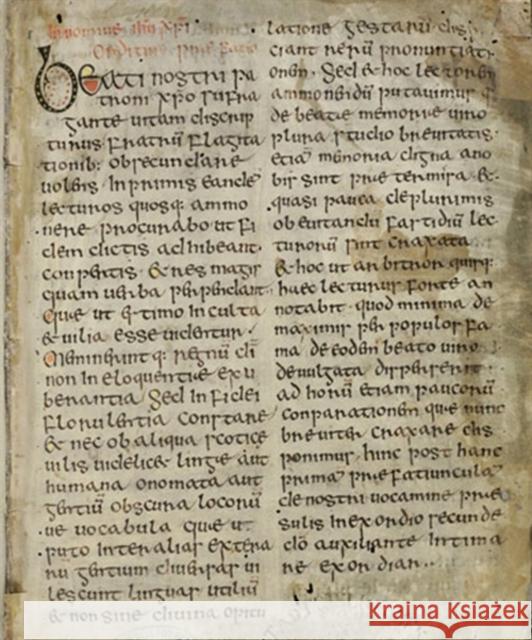 In nomine ihu xpi
Orditur prae fatio
Beati nostri pa
troni xpo suffra
gante uitam discrip
turus fratrū flagita
tionib; obsecundare
uolens Inprimis eandē
lecturos quosq; ammo
nere procurabo ut fi
dem dictis adhibeant
conpertis & res magis
quam uerba perpendant
Quae ut estimo Inculta
& uilia esse uidentur
Meminerint q; regnū dī
non In eloquentiae exu
berantia sed In fidei
florulentia constare
& nec ob aliqua scotice
uilis uidelicet lingae aut
humana onomata aut
gentiū obscura locorū
ue uocabula quae ut
puto Inter alias extera
rū gentium diuersas ui
lescunt linguas utiliū
& non sine diuina opitu
latione gestarū dis
ciant rerū pronuntiati
onem. Sed & hoc lectorem
ammonendū putauimus q
de beatae memoriae uiro
plura studio breuitatis
etiā memoria digna a no
bis sint praetermisa &
quasi pauca de plurimis
ob euitandū fastidiū lec
turorū sint craxata
& hoc ut arbitror quisq;
haec lecturus forte an
notabit quod minima de
maximis per populos fa
ma de eodem beato uiro
deuulgata disperserit
ad horū etiam paucorū
conparationem quae nunc
breuiter craxare dis
ponimus. hinc post hanc
primā praefatiunculā
de nostri uocamine prae
sulis In exordio secunde
dō auxiliante Intima
re exordiar